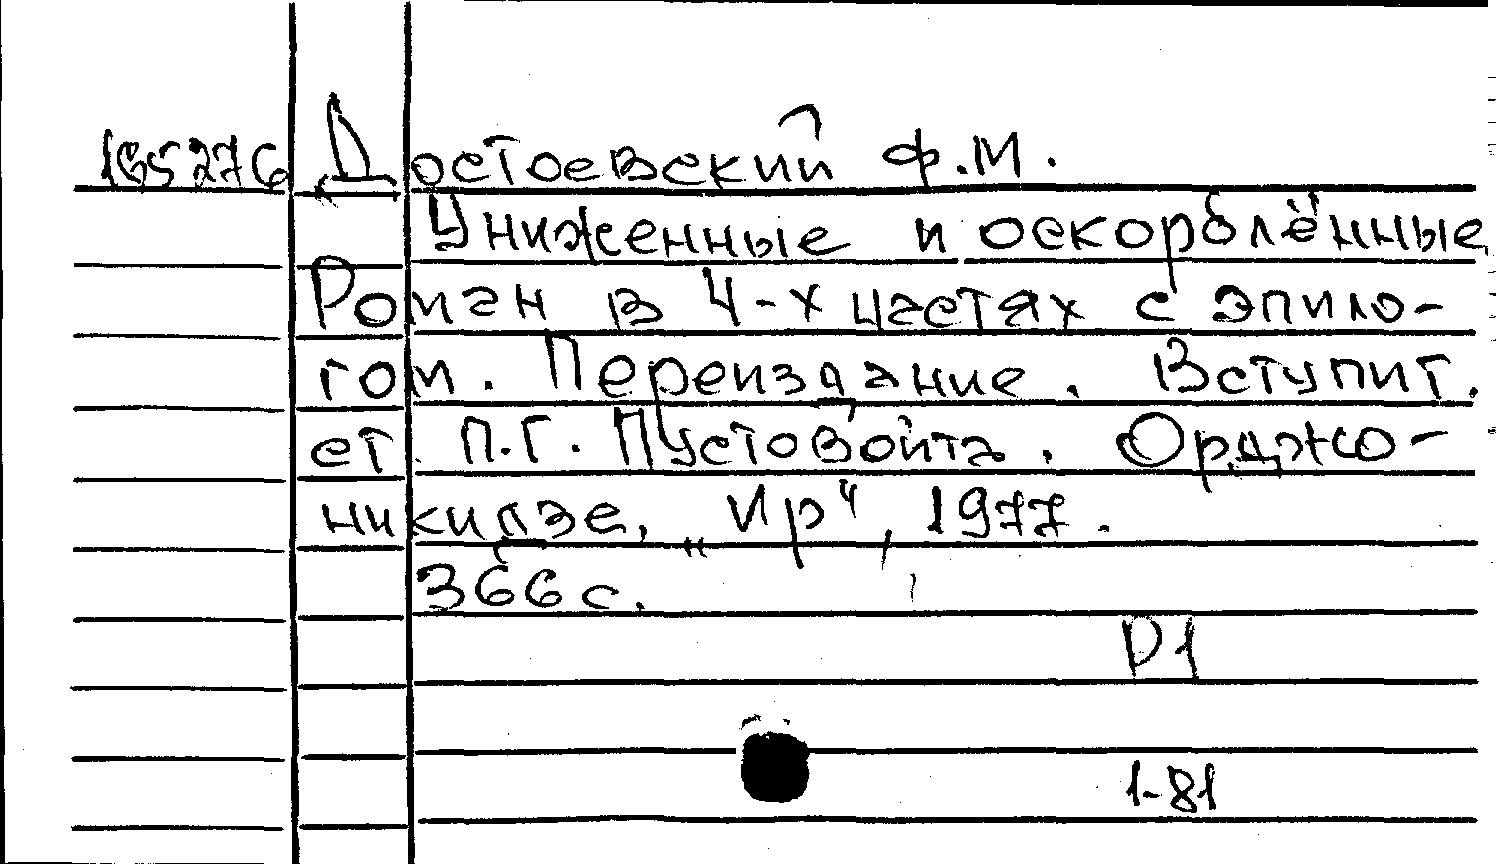 165276 Достоевский Ф.М.
Униженные и оскорблённые
Роман в 4-х частях с эпило-
гом. Переиздание. Вступит.
ст. П.Г. Пустовойта. Орджо-
никидзе, „Ир“, 1977.
366 с.
Р1
1-81